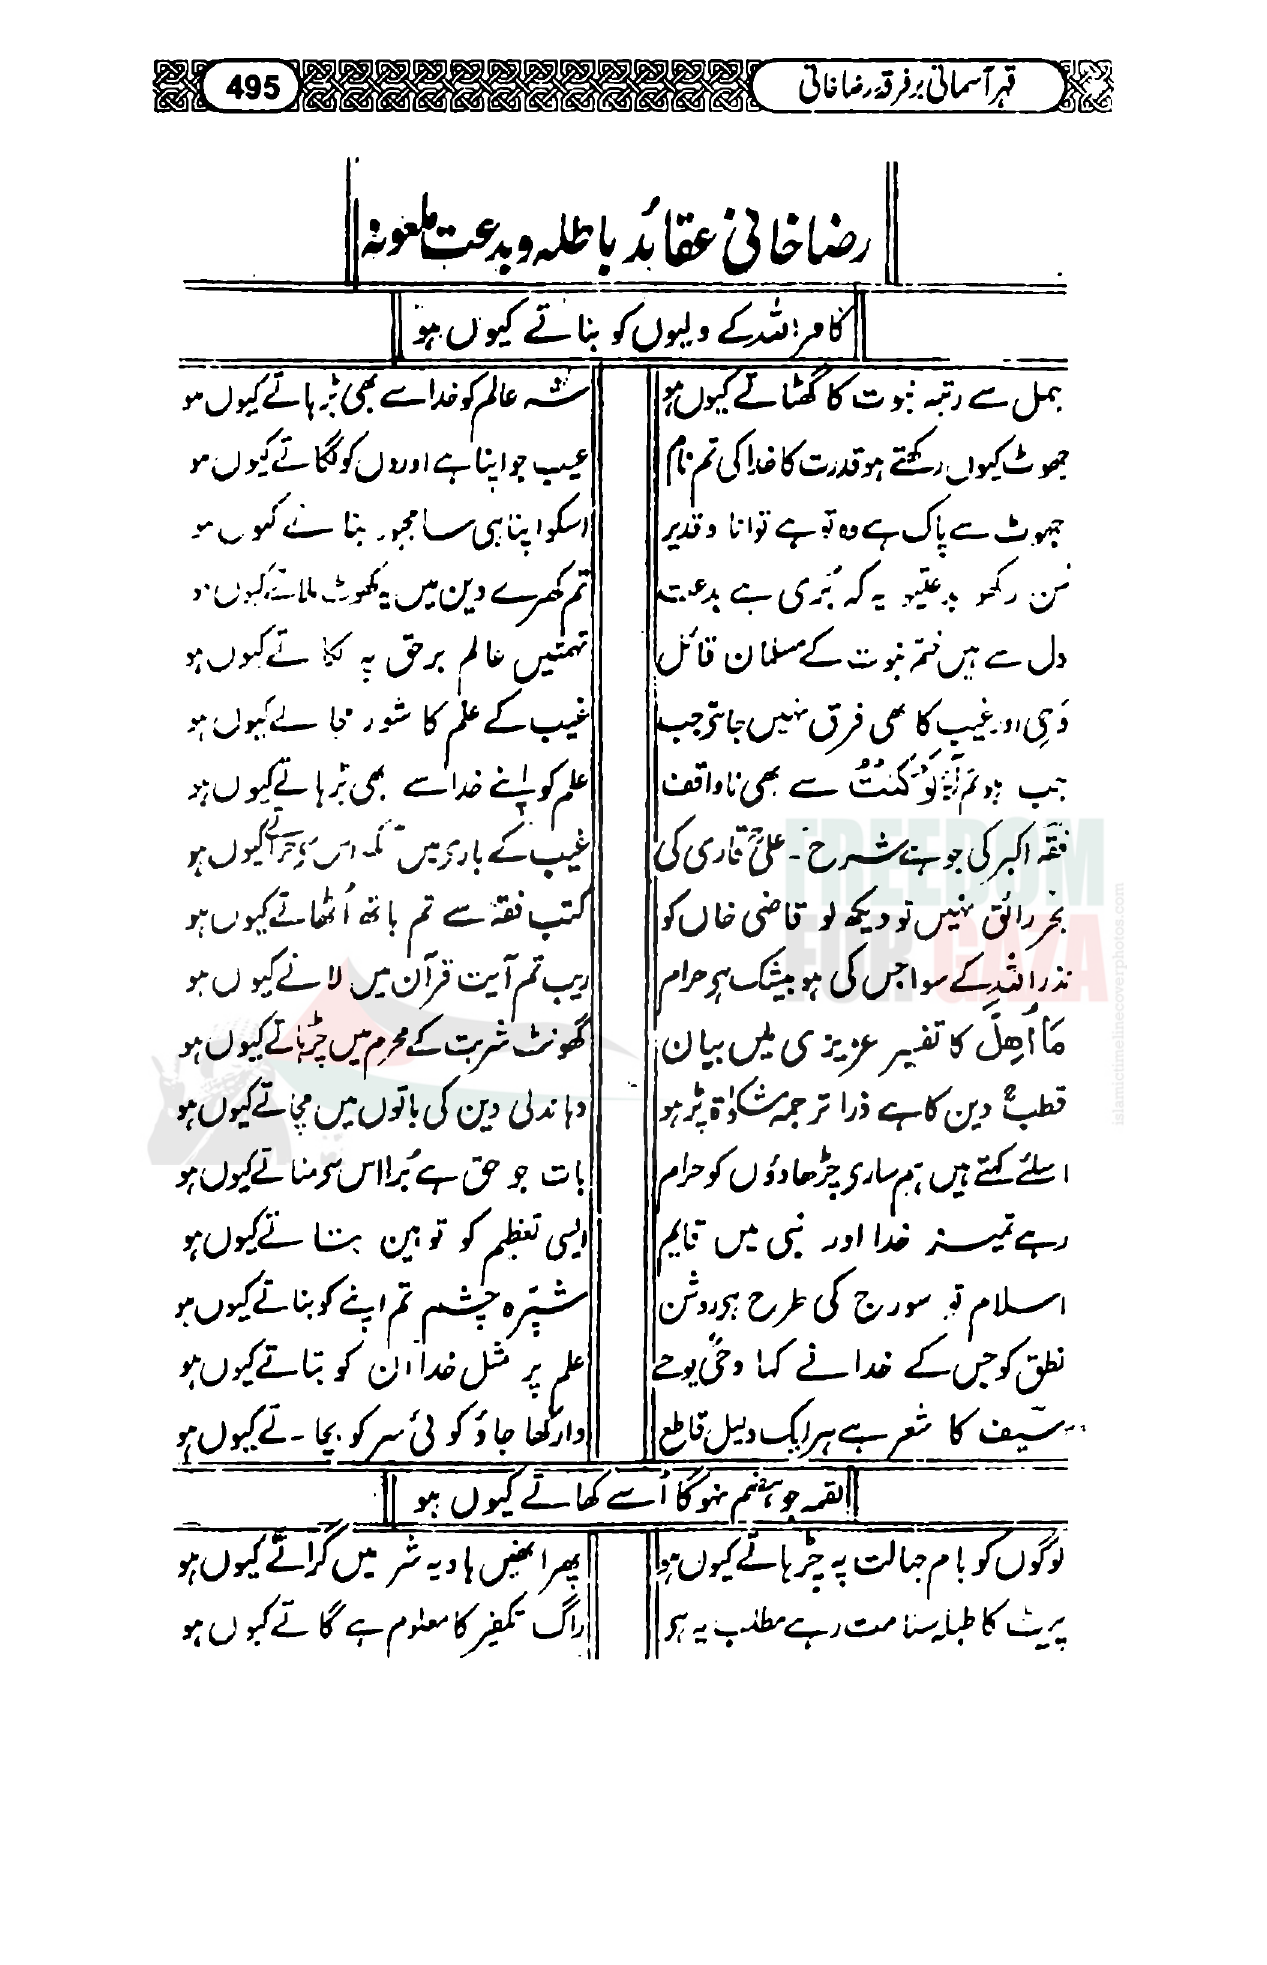 قہر آسمانی بر فرقہ رضا خانی
495
رضا خانی عقائد باطلہ و بدعت ملعونہ
کافر اللہ کے ولیوں کو بناتے کیوں ہو
جہل سے رتبہ نبوت کا گھٹاتے کیوں ہو شہ عالم کو خدا سے بھی بڑہاتے کیوں ہو
جھوٹ کیوں رکھتے ہو قدرت کا خدا کی تم نام عیب جو اپنا ہے اوروں کو لگاتے کیوں ہو
جھوٹ سے پاک ہے وہ تو ہے توانا و قدیر اسکو اپنا ہی سا مجبور بناتے کیوں ہو
سن رکھو بدعتیو یہ کہ بُری ہے بدعت تم کھرے دین میں یہ کھوٹ ملاتے کیوں ہو
دل سے ہیں ختم نبوت کے مسلمان قائل تہمتیں عالم برحق پہ لگاتے کیوں ہو
وَحی اور غیب کا بھی فرق نہیں جانو جب غیب کے علم کا شور مچاتے کیوں ہو
جب ہو تم آیہ لَوْ کُنتُ سے بھی ناواقف علم کو اپنے خدا سے بھی بڑہاتے کیوں ہو
فقہ اکبر کی جو ہے شرح علیؒ قاری کی غیب کے باری میں اس کو کیوں ہو
بحر رائق نہیں تو دیکھ لو قاضی خاں کو کتب فقہ سے تم ہاتھ اُٹھاتے کیوں ہو
نذر اللہ کے سوا جس کی ہو بیشک ہی حرام ریب تم آیت قرآن میں لاتے کیوں ہو
مَا اُھِلَّ کا تفسیر عزیزی میں بیان گھونٹ شربت کے محرم میں چڑہاتے کیوں ہو
قطبؒ دین کا ہے ذرا ترجمہ مشکوٰۃ پڑہو دہاندلی دین کی باتوں میں مچاتے کیوں ہو
اسلئے کہتے ہیں ہم ساری چڑھاووں کو حرام بات جو حق ہے بُرا اس سی مناتے کیوں ہو
رہے تمیز خدا اور نبی میں قایم ایسی تعظیم کو توہین بتاتے کیوں ہو
اسلام تو سورج کی طرح ہی روشن شپّرہ چشم تم اپنے کو بناتے کیوں ہو
نطق کو جس کے خدا نے کہا وحیٌ یوحے علم پر مثل خدا ان کو بتاتے کیوں ہو
سیف کا شعر ہے ہر ایک دلیل قاطع وار کھا جاؤ کوئی سر کو بچاتے کیوں ہو
لقمہ جو ہضم نہو گا اُسے کھاتے کیوں ہو
لوگوں کو بام جہالت پہ چڑہاتے کیوں ہو پھر انھیں ہاویہ شر میں گراتے کیوں ہو
پیٹ کا طبلہ سلامت رہے مطلب یہ ہی راگ تکفیر کا معلوم ہے گاتے کیوں ہو
FREEDOM
FOR GAZA
islamictimelinecoverphotos.com